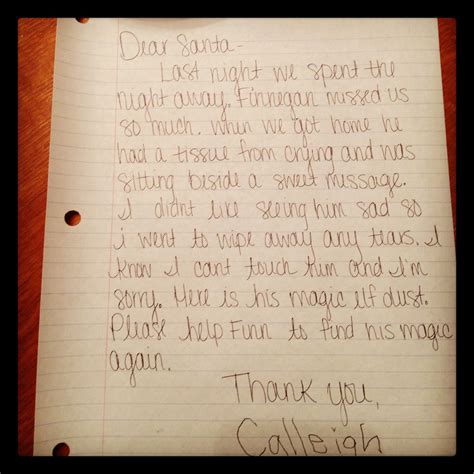 Dear Santa-
Last night we spent the
night away. Finnegan missed us
so much. When we got home he
had a tissue from crying and was
sitting beside a sweet message.
I didnt like seeing him sad so
i went to wipe away any tears. I
know I cant touch him and I'm
sorry. Here is his magic elf dust.
Please help Finn to find his magic
again.
Thank you,
Calleigh